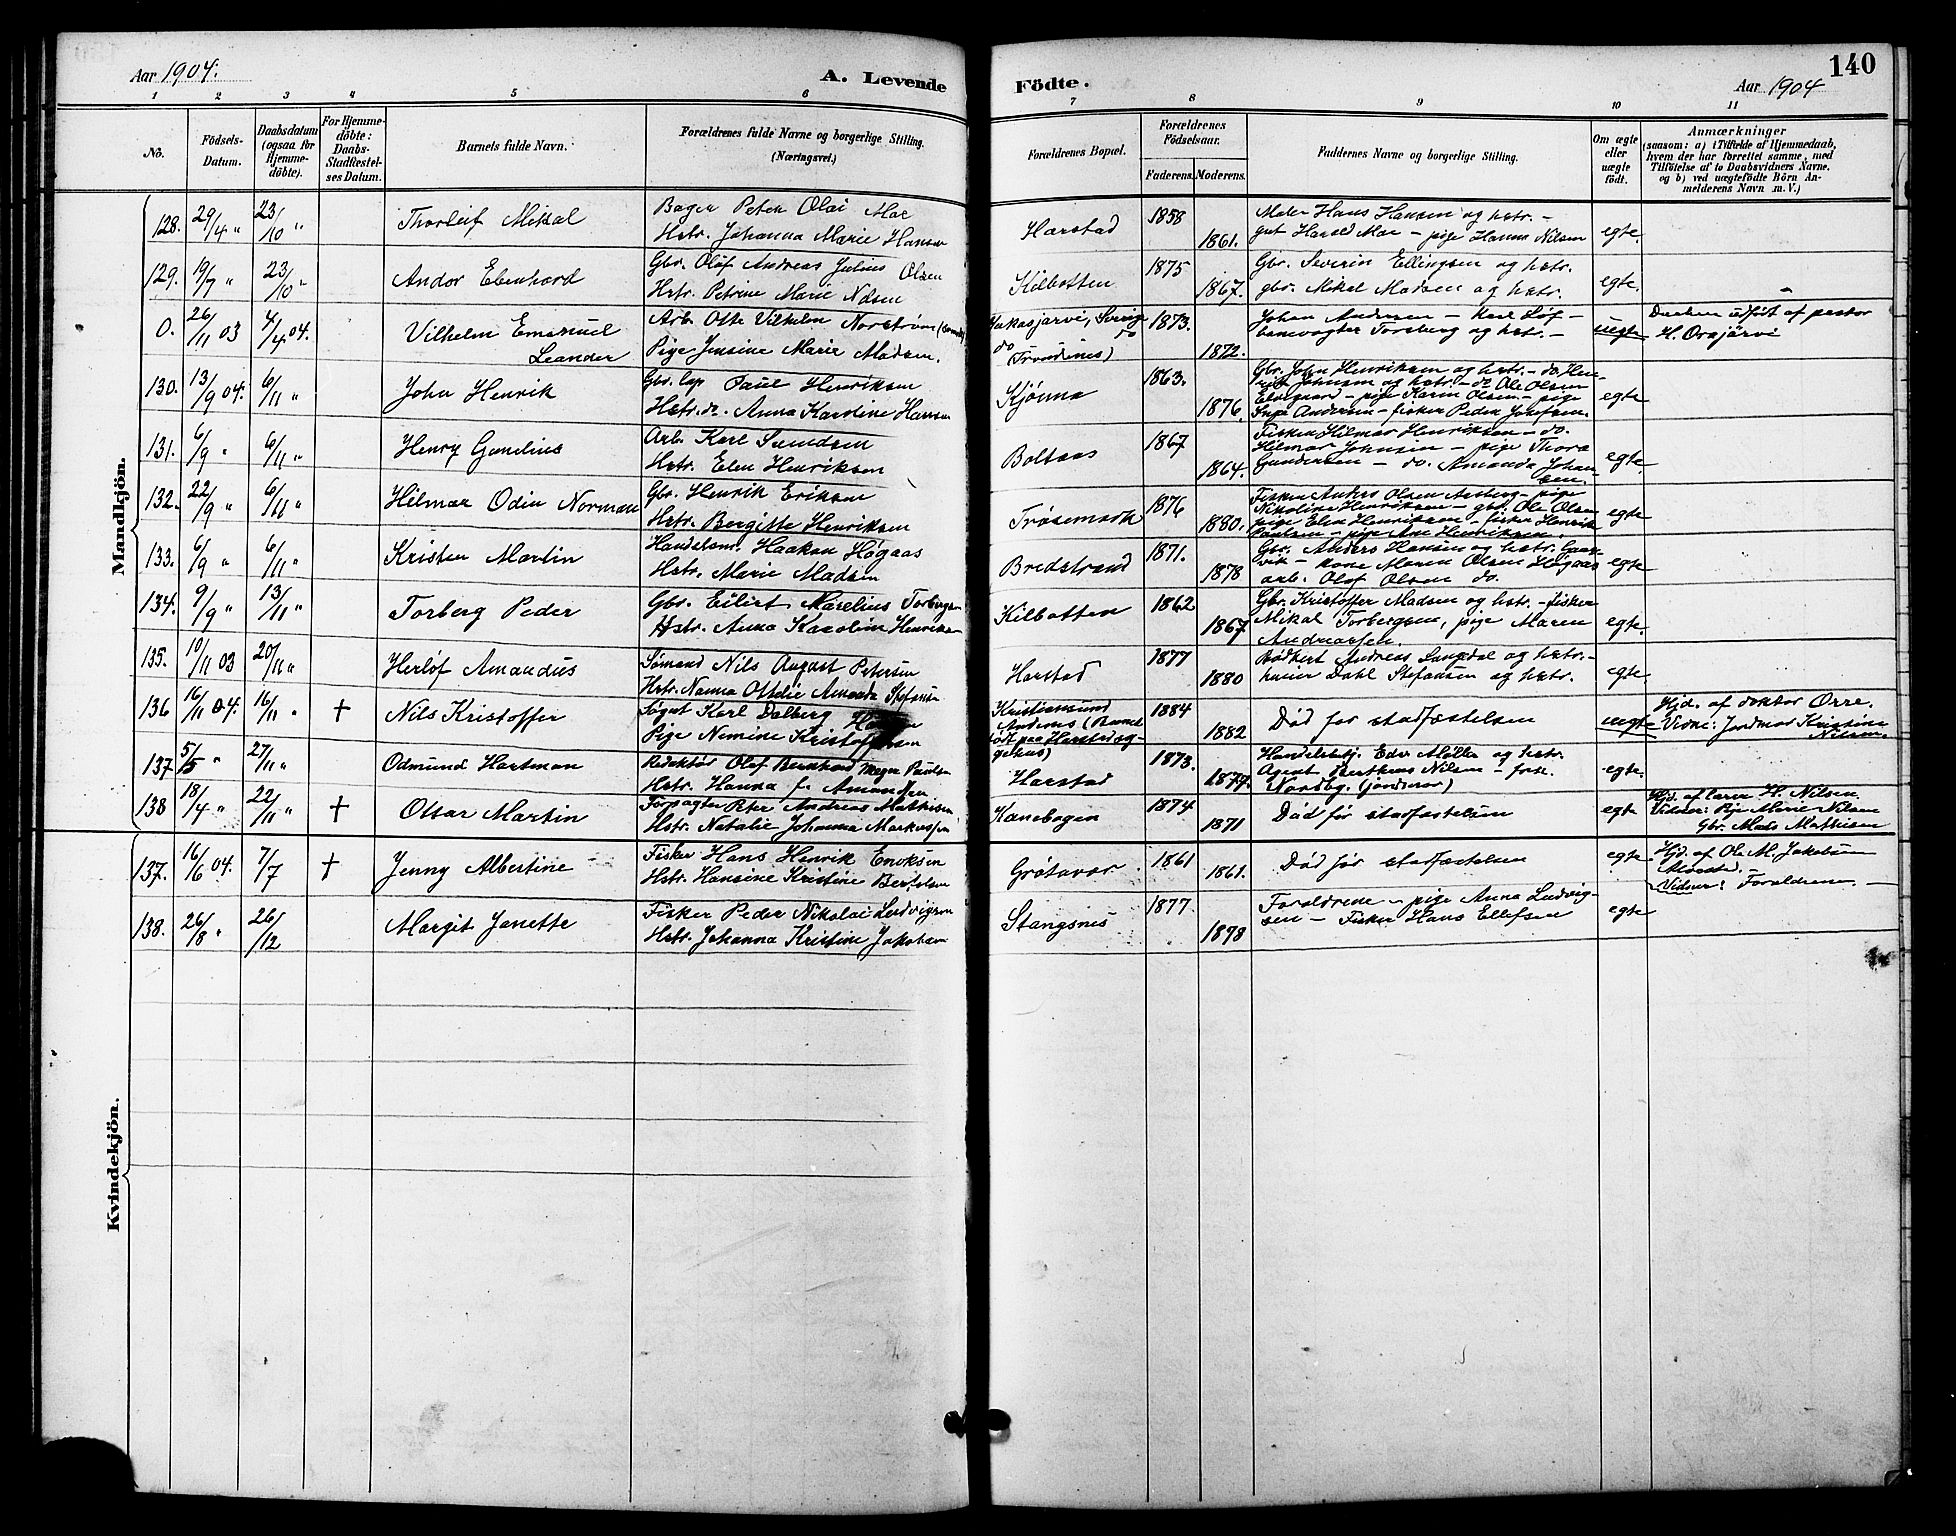 Aar 1904.
A. Levende
Födte.
Aar 1904
140
1 2 3 4 5 6 7 8 9 10 11
No.
Födsels-
Datum.
Daabsdatum
(ogsaa för
Hjemme-
döbte).
For Hjemme-
döbte:
Daabs-
Stadfæstel-
ses Datum.
Barnets fulde Navn.
Forældrenes fulde Navne og borgerlige Stilling.
(Næringsvei.)
Forældrenes Bopæl.
Forældrenes
Födselsaar.
Faderens. Moderens.
Faddernes Navne og borgerlige Stilling.
Om ægte
eller
uægte
født.
Anmærkninger
(saasom: a) i Tilfælde af Hjemmedaab,
hvem der har forrettet samme, med
Tilföielse af to Daabsvidners Navne,
og b) ved uægtefödte Börn An-
melderens Navn .m. V.)
Mandkjön.
128. 29/4 " 23/10 " Thorleif Mikal
Bager Peder Olai Moe
Hstr. Johanna Marie Hansen
Harstad 1858 1861.
Maler Hans Hansen og hstr. –
gut Harald Moe – pige Hanna Nilsen
egte.
129. 19/7 " 23/10 " Andor Edenhard
Gbr. Olof Andreas Julius Olsen
Hstr. Petrine Marie Nilsen
Kilbotten 1875 1867.
Gbr. Severin Ellingsen og hstr.
gbr. Mikal Madsen og hstr.
egte.
0. 26/11 03 4/4 04. Vilhelm Emanuel
Leander
Arb. Otto Vilhelm Norström
Pige Jensine Marie Madsen.
Jukasjarvi, Sverig
do
Trondenes)
1873. 1872.
Johan Andersen – Karl Löf –
banevogter Forsberg og hstr. –
uegte
Daaben udført af pastor
H. Orajärvi
130. 13/9 04. 6/11 " John Henrik
Gbr. lap Paul Henriksen
Hstr. do. Anna Karoline Hansen
Kjønna 1863. 1876.
Gbr. John Henriksen og hstr. – do Hen-
rik Johnsen og hstr. – do Ole Olsen
Elvegaard – pige Karen Olsen – pige
Inga Andersen – fisker Peder Josefsen.
egte
131. 6/9 " 6/11 " Henry Gunelius
Arb. Karl Samdsen
Hstr. Elen Henriksen
Boltaas 1867 1864.
Fisker Hilmar Henriksen – do.
Hilmar Johnsen – pige Thora
Gundersen – do. Amanda Johan
sen.
egte
132. 22/9 " 6/11 " Hilmar Odin Norman
Gbr. Henrik Eriksen
Hstr. Bergitte Henriksen
Trøsemark 1876 1880.
Fisker Anders Olsen Aasberg – pige
Nikoline Henriksen – gbr. Ole Olsen
pige Elen Henriksen – fisker Henrik
Paulsen – pige Ane Henriksen.
egte
133. 6/9 " 6/11 " Kristen Martin
Handelsm. Haakon Høgaas
Hstr. Marie Madsen
Bredstrand 1871. 1878
Gbr. Anders Hansen og hstr. Gaas-
vik – kone Maren Olsen Høgaas
arb. Olof Olsen do.
egte
134. 9/9 " 13/11 " Torberg Peder
Gbr. Eilert Marelius Torbergsen
Hstr. Anna Karoline Henriksen
Kilbotten 1862 1867
Gbr. Kristoffer Madsen og hstr. – fisker
Mikal Torbergsen, pige Maren
Andreassen.
egte.
135. 10/11 03 20/11 " Herlof Amandus
Sømand Nils August Petersen
Hstr. Nanna Ottelie Amanda Stefansen
Harstad 1877 1880
Bødkert Andreas Langdal og hstr. –
kurer Dahl Stefansen og hstr.
egte.
136 16/11 04. 16/11 " † Nils Kristoffer
Søgut Karl Dalberg
Pige Nemine Kristoffersen
Kristiansund
Andenes (Barnet
født paa Harstad syg-
gehus)
1884 1882
Død før stadfæstelsen
uegte
Hjd. af doktor Orre.
Vidne: Jordmor Kristine
Nilsen.
137 5/5 " 27/11 " Odmund Hartman
Redaktør Olaf Bernhard Meyer Paulsen
Hstr. Hanna f. Amundsen
Harstad 1873. 1877.
Handelsbtj. Edv Møller og hstr.
Agent Bertheus Nilsen – frk.
Nordby. (jordmor)
egte.
138 18/4 " 22/11 " † Ottar Martin
Forpagter Peter Andreas Mathisen
Hstr. Natalie Johanna Markussen
Kanebogen 1874 1871
Død før stadfæstelsen
egte
Hjd. af lærer H. Nilsen
Vidner: Pige Marie Nilsen
Gbr. Mats Mathisen
Kvindekjön.
137. 16/6 04. 7/7 † Jenny Albertine
Fisker Hans Henrik Enoksen
Hstr. Hansine Kristine Bertelsen
Grøtavær 1861 1861.
Død før stadfæstelsen
egte
Hjd. af Ole M. Jakobsen
Vidner: Forældrene. –
138. 26/8 " 26/12 Margit Janette
Fisker Peder Nikolai Ludvigsen
Hstr. Johanna Kristine Jakobsen
Stangsnes 1877. 1878
Forældrene – pige Anna Ludvig-
sen – Fisker Hans Ellefsen
egte